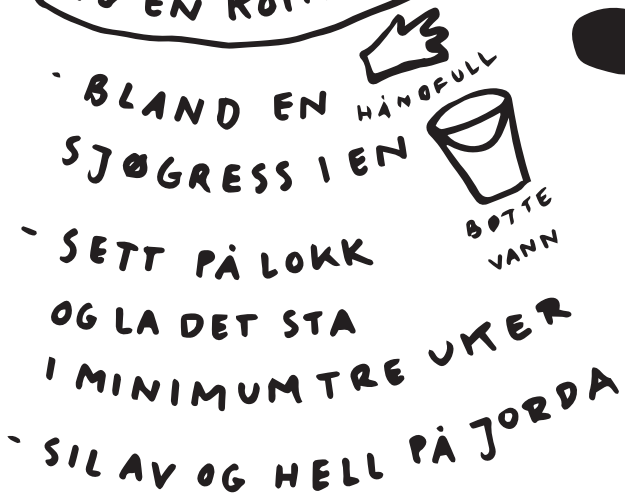 EN
- BLAND EN HÅNDFULL
SJØGRESS I EN BØTTE
VANN
- SETT PÅ LOKK
OG LA DET STA
I MINIMUM TRE UKER
- SIL AV OG HELL PÅ JORDA